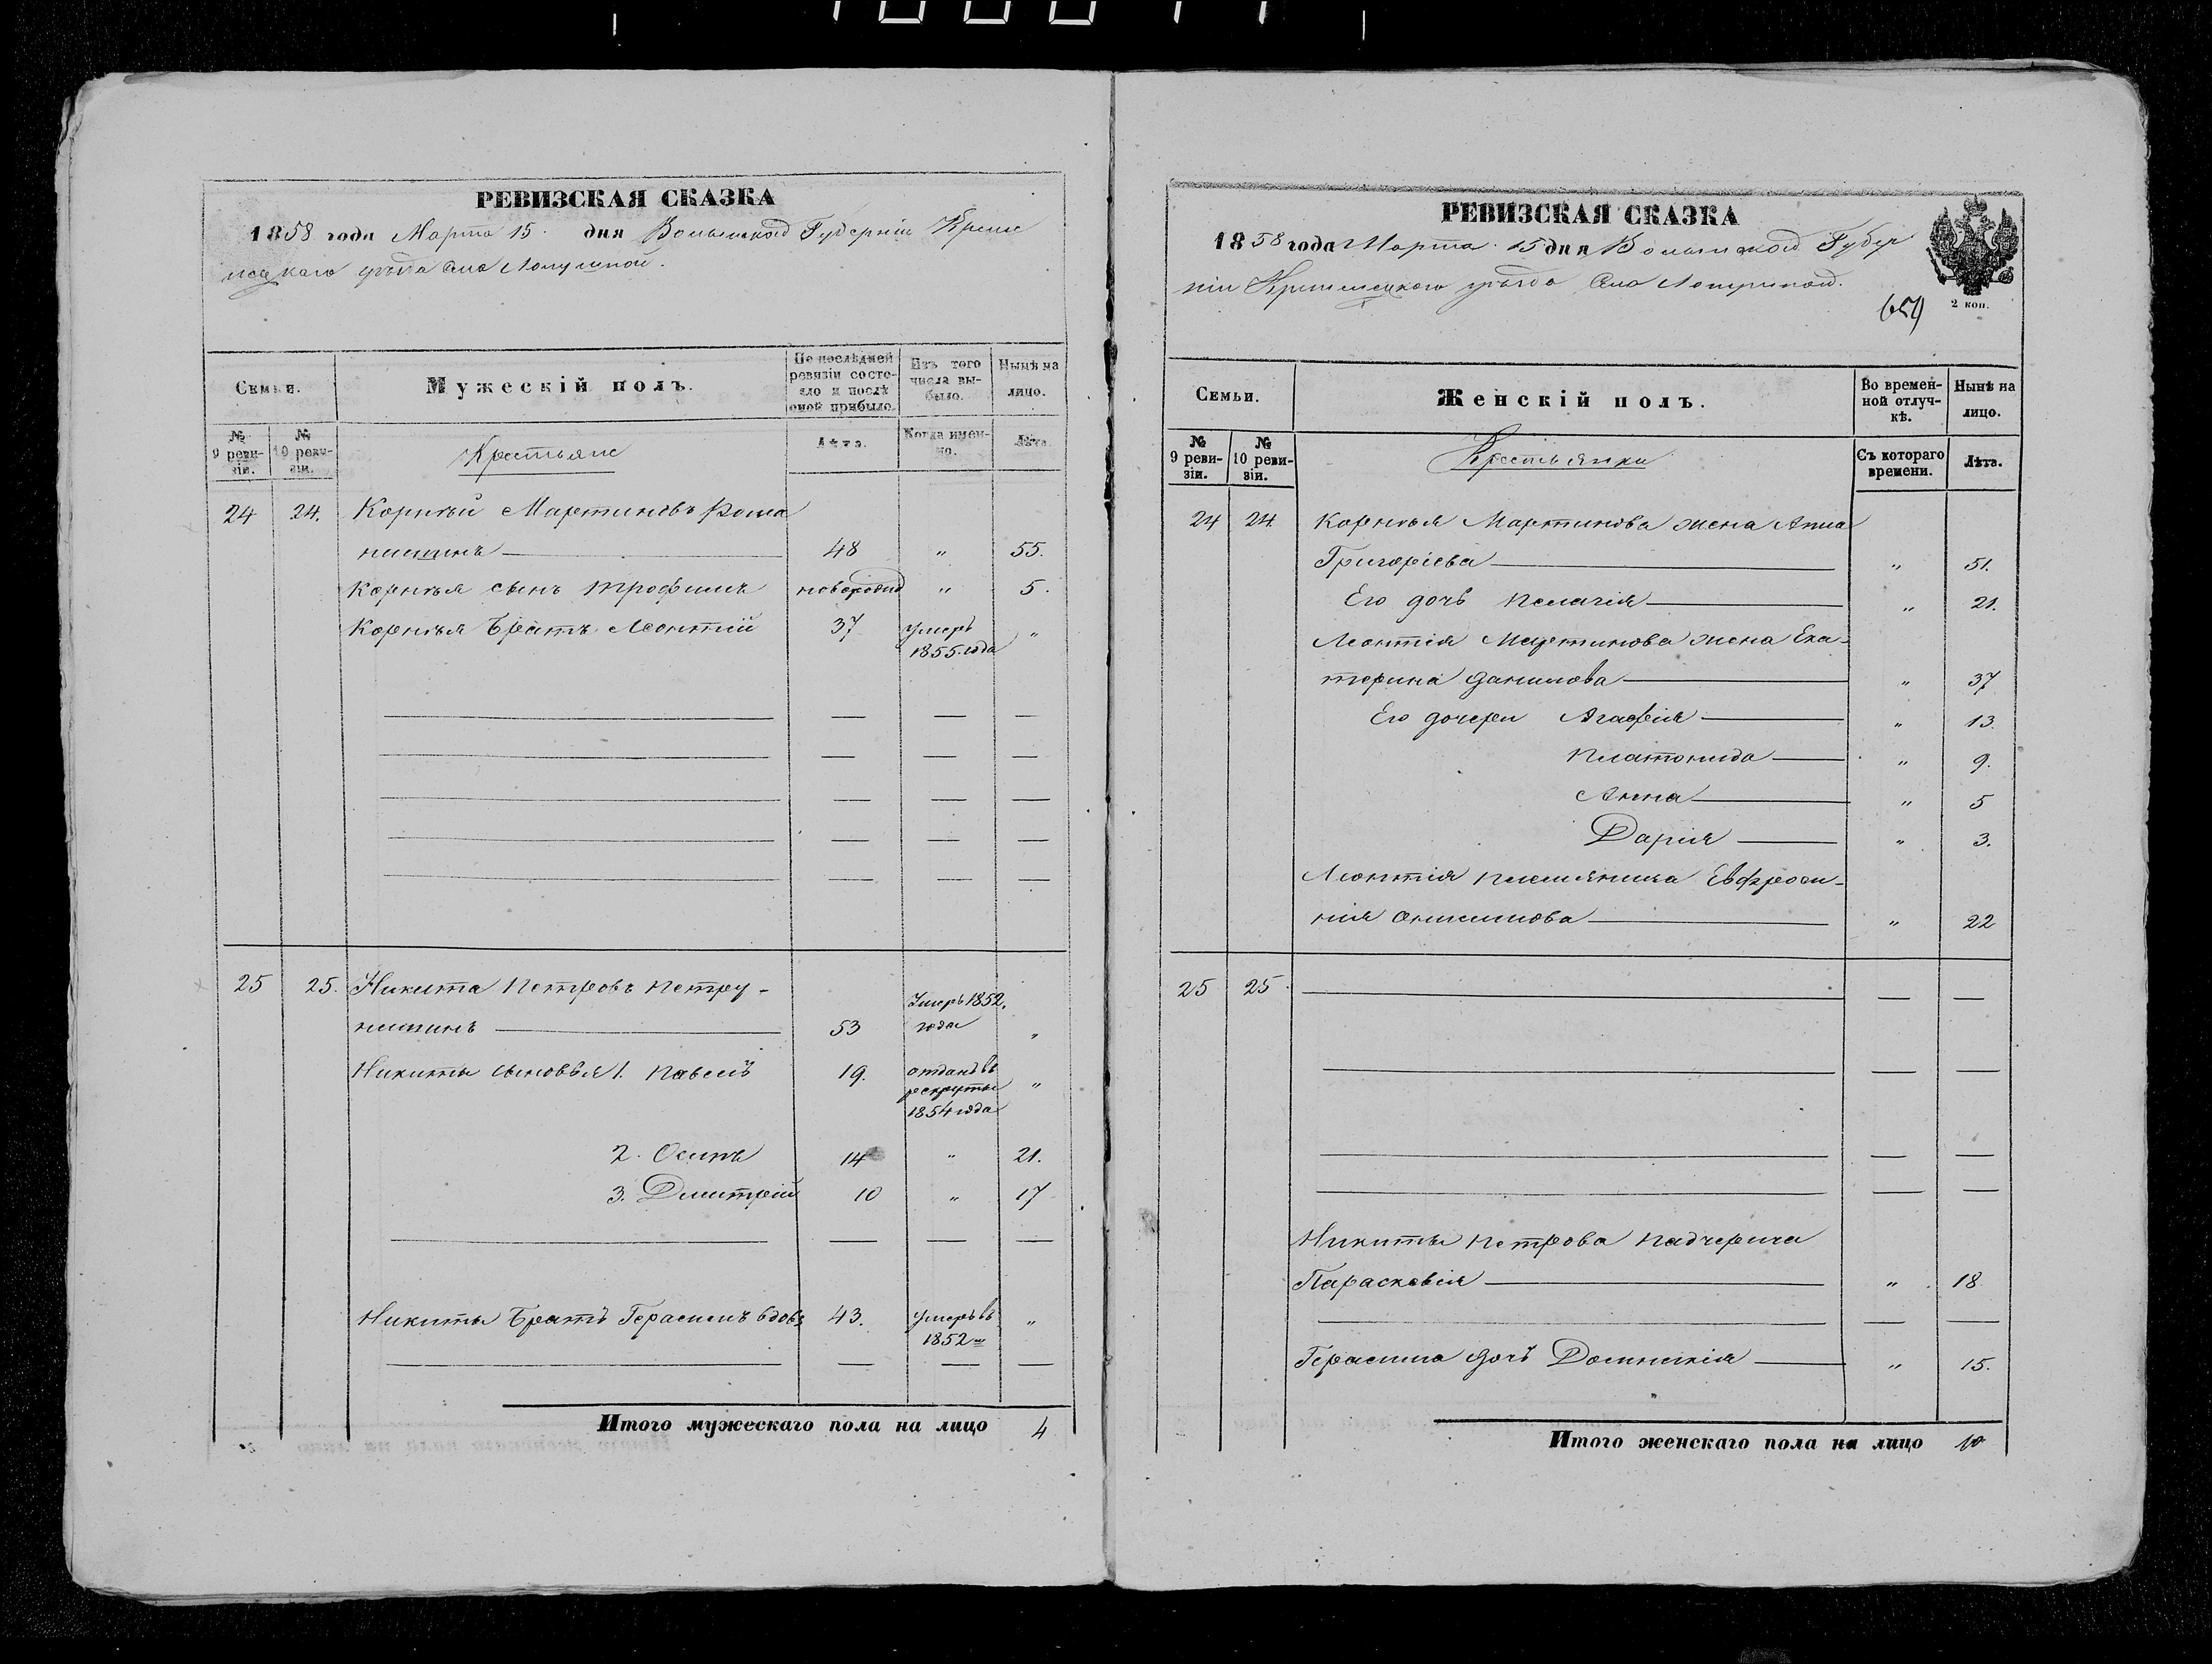 РЕВИЗСКАЯ СКАЗКА
1858 года Марта 15 дня Волынской Губерніи Креме
нецкаго уѣзда Села Лопушной.
Семьи.
Мужескій полъ.
По послѣдней ревизіи состояло и послѣ оной прибыло.
Изъ того числа выбыло.
Нынѣ на лицо.
№ 9 ревизіи.
№ 10 ревизіи.
Крестьяне
Лѣта.
Когда именно.
Лѣта.
24 24. Корнѣй Мартиновъ Рома
нишинъ 48 " 55.
Корнѣя сынъ Трофимъ новорожд " 5.
Корнѣя Братъ Леонтій 37 умеръ 1855 года "
25 25. Никита Петровъ Петру-
нишинъ 53 Умеръ 1852 года "
Никиты сыновья 1. Павелъ 19. отданъ въ рекруты 1854 года "
2. Осипъ 14 " 21.
3. Дмитрій 10 " 17
Никиты Братъ Герасимъ вдовъ 43. умеръ въ 1852 "
Итого мужескаго пола на лицо 4
РЕВИЗСКАЯ СКАЗКА
1858 года Марта 15 дня Волынской Губер
ніи Кременецкаго уѣзда Села Лопушной.
659
2 коп.
Семьи.
Женскій полъ.
Во временной отлучкѣ.
Нынѣ на лицо.
№ 9 ревизіи.
№ 10 ревизіи.
Крестьянки
Съ котораго времени.
Лѣта.
24 24. Корнѣя Мартинова жена Анна
Григоріева " 51.
Его дочь Пелагія " 21.
Леонтія Мартинова жена Ека-
терина Данилова " 37
Его дочери Агафія " 13.
Платонида " 9.
Анна " 5
Дарія " 3.
Леонтія племяница Евфроси-
нія Онисимова " 22
25 25
Никиты Петрова Падчерица
Параскевія " 18
Герасима дочь Домникія " 15.
Итого женскаго пола на лицо 10